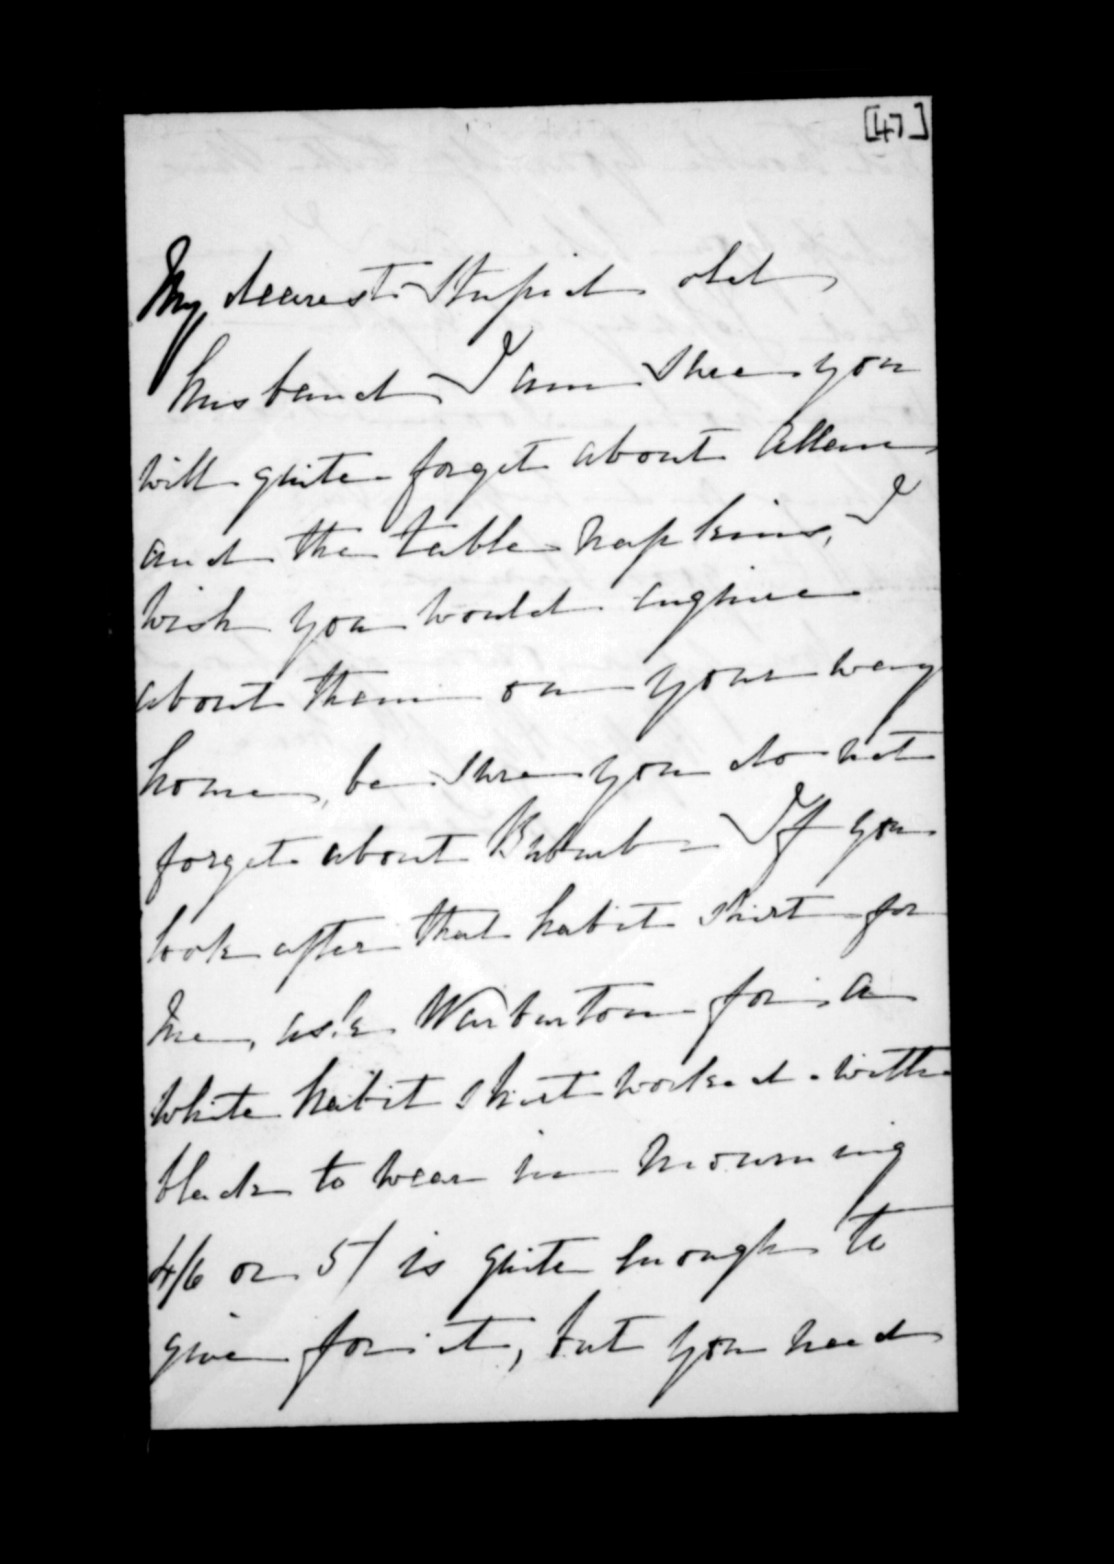 [47]
My dearest Stupid old
husband, I am sure you
will quite forget about Allen
and the table napkins, I
wish you would enquire
about them on your way
home, be sure you do not
forget about - If you
look after that habit shirt for
me, ask Warburton for a
white habit shirt worked with
black to wear in mourning
4/6 or 5/ is quite enough to
give for it, but you need